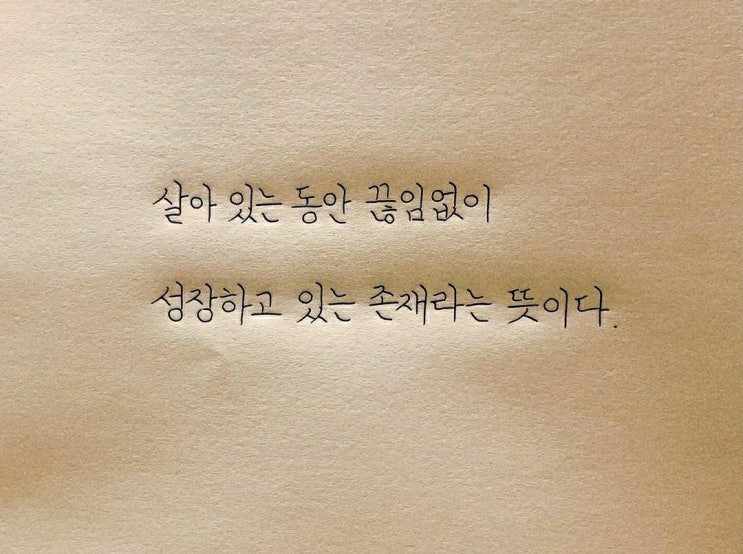 살아 있는 동안 끊임없이
성장하고 있는 존재라는 뜻이다.